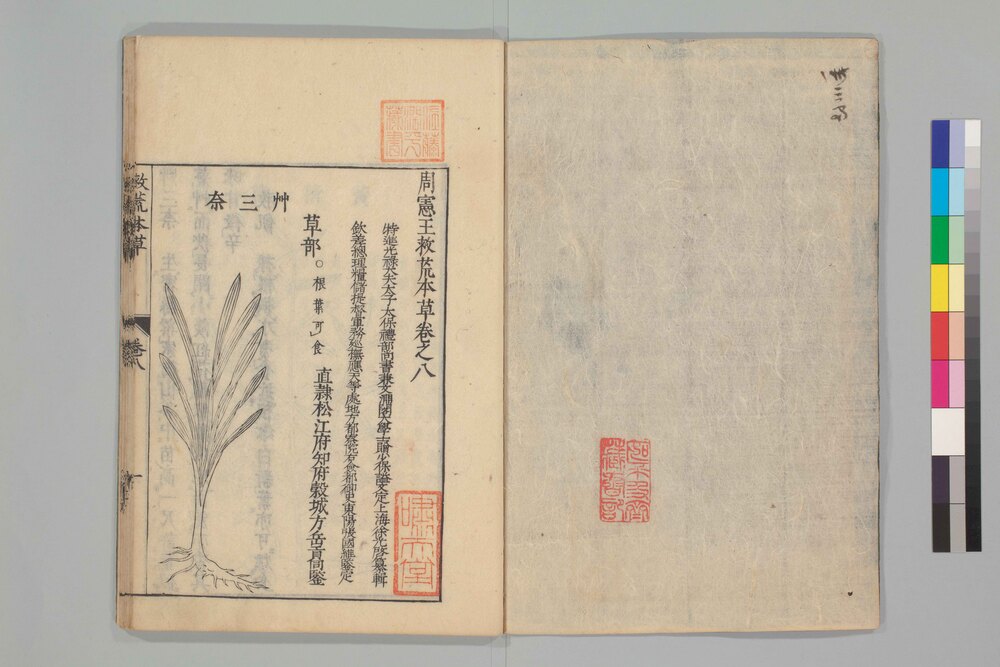 周憲王救荒本草卷之八
特進光祿大夫太子太保禮部尚書兼文淵閣大學士贈少保諡文定上海徐光啓纂輯
欽差總理糧儲提督軍務巡撫應天等處地方都察院右僉都御史東陽張國維鑒定
草部 ○根葉可食 直隷松江府知府穀城方岳貢同鑒
艸三奈
救荒本草
卷八
一